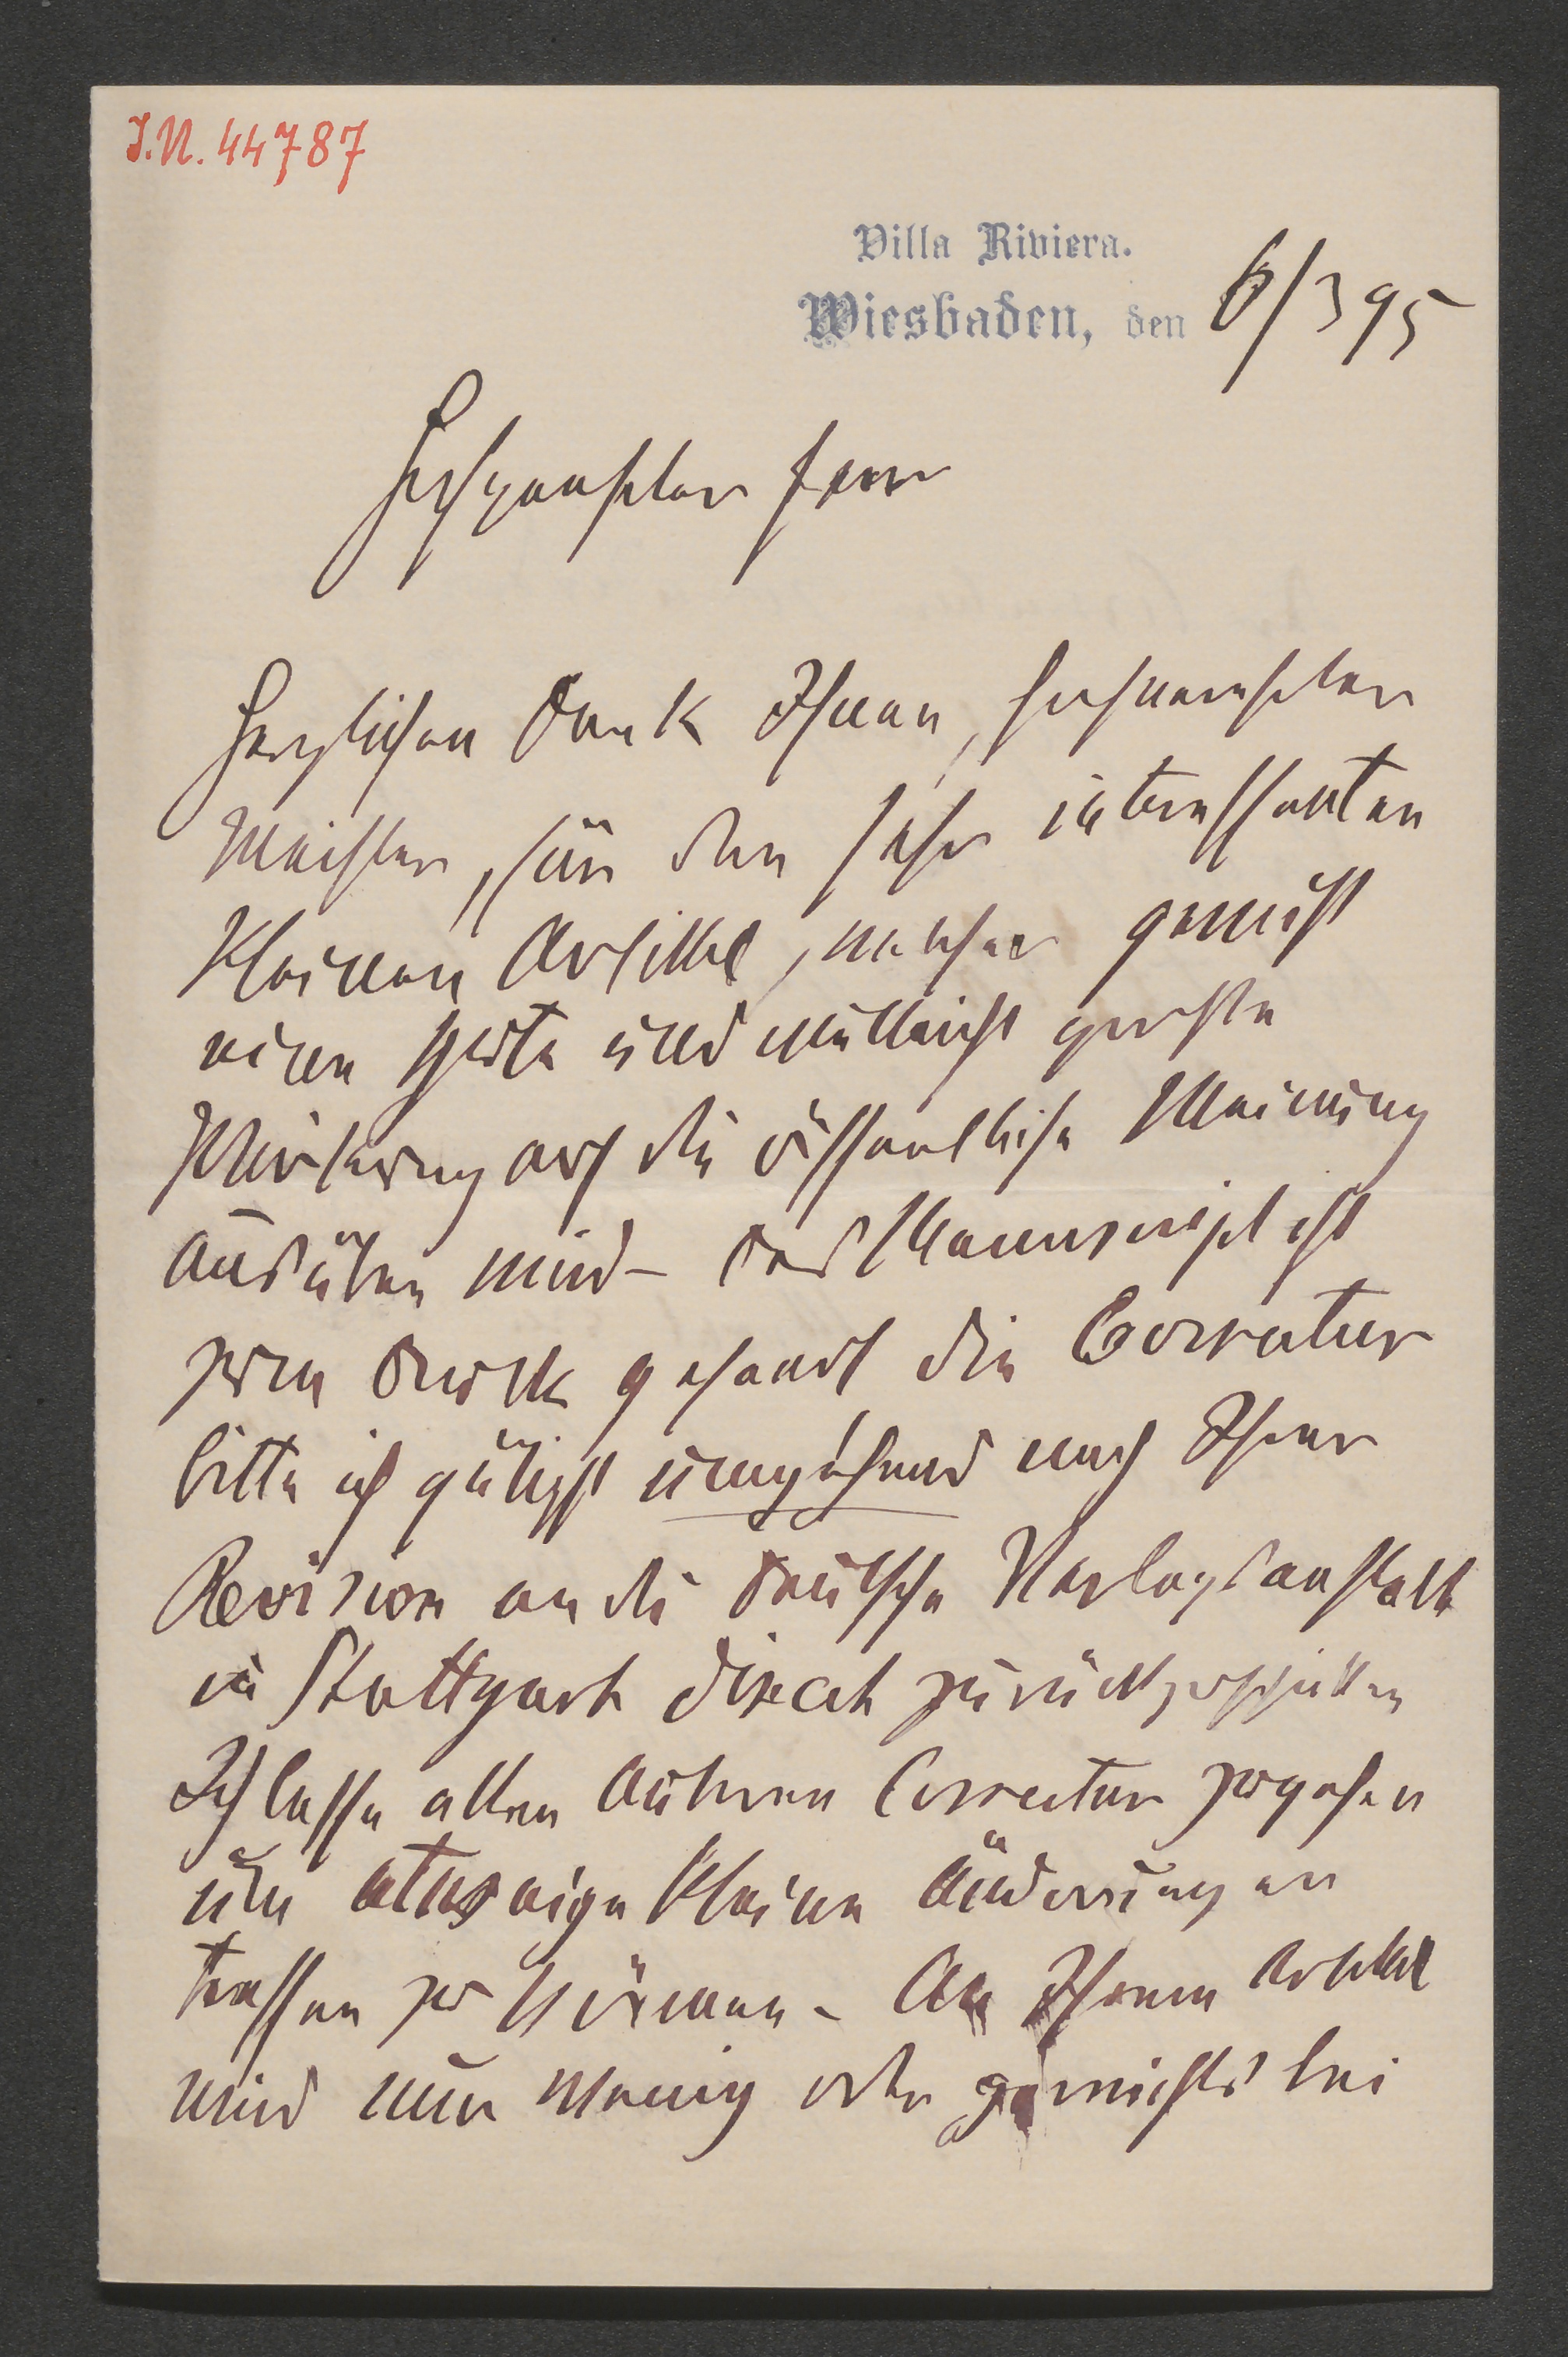 I.N. 44787
Villa Riviera.
Wiesbaden, den 6/3 95
Hochgeehrter Herr
Herzlichen Dank Ihnen, hochverehrter
Meister, für den sehr interessanten
kleinen Artikel, welcher gewiß
eine gute und vielleicht große
Wirkung auf die öffentliche Meinung
ausüben wird – das Manuscript ist
zum Druck gesandt die Correctur
bitte ich gütigst umgehend nach Ihrer
Revision an die Deutsche Verlagsanstalt
in Stuttgart direct zurückzuschicken
Ich lasse allen Autoren Correctur zugehen
um etwaige kleine Änderungen
treffen zu können – An Ihrem Artikel
wird nur wenig oder garnichts bei